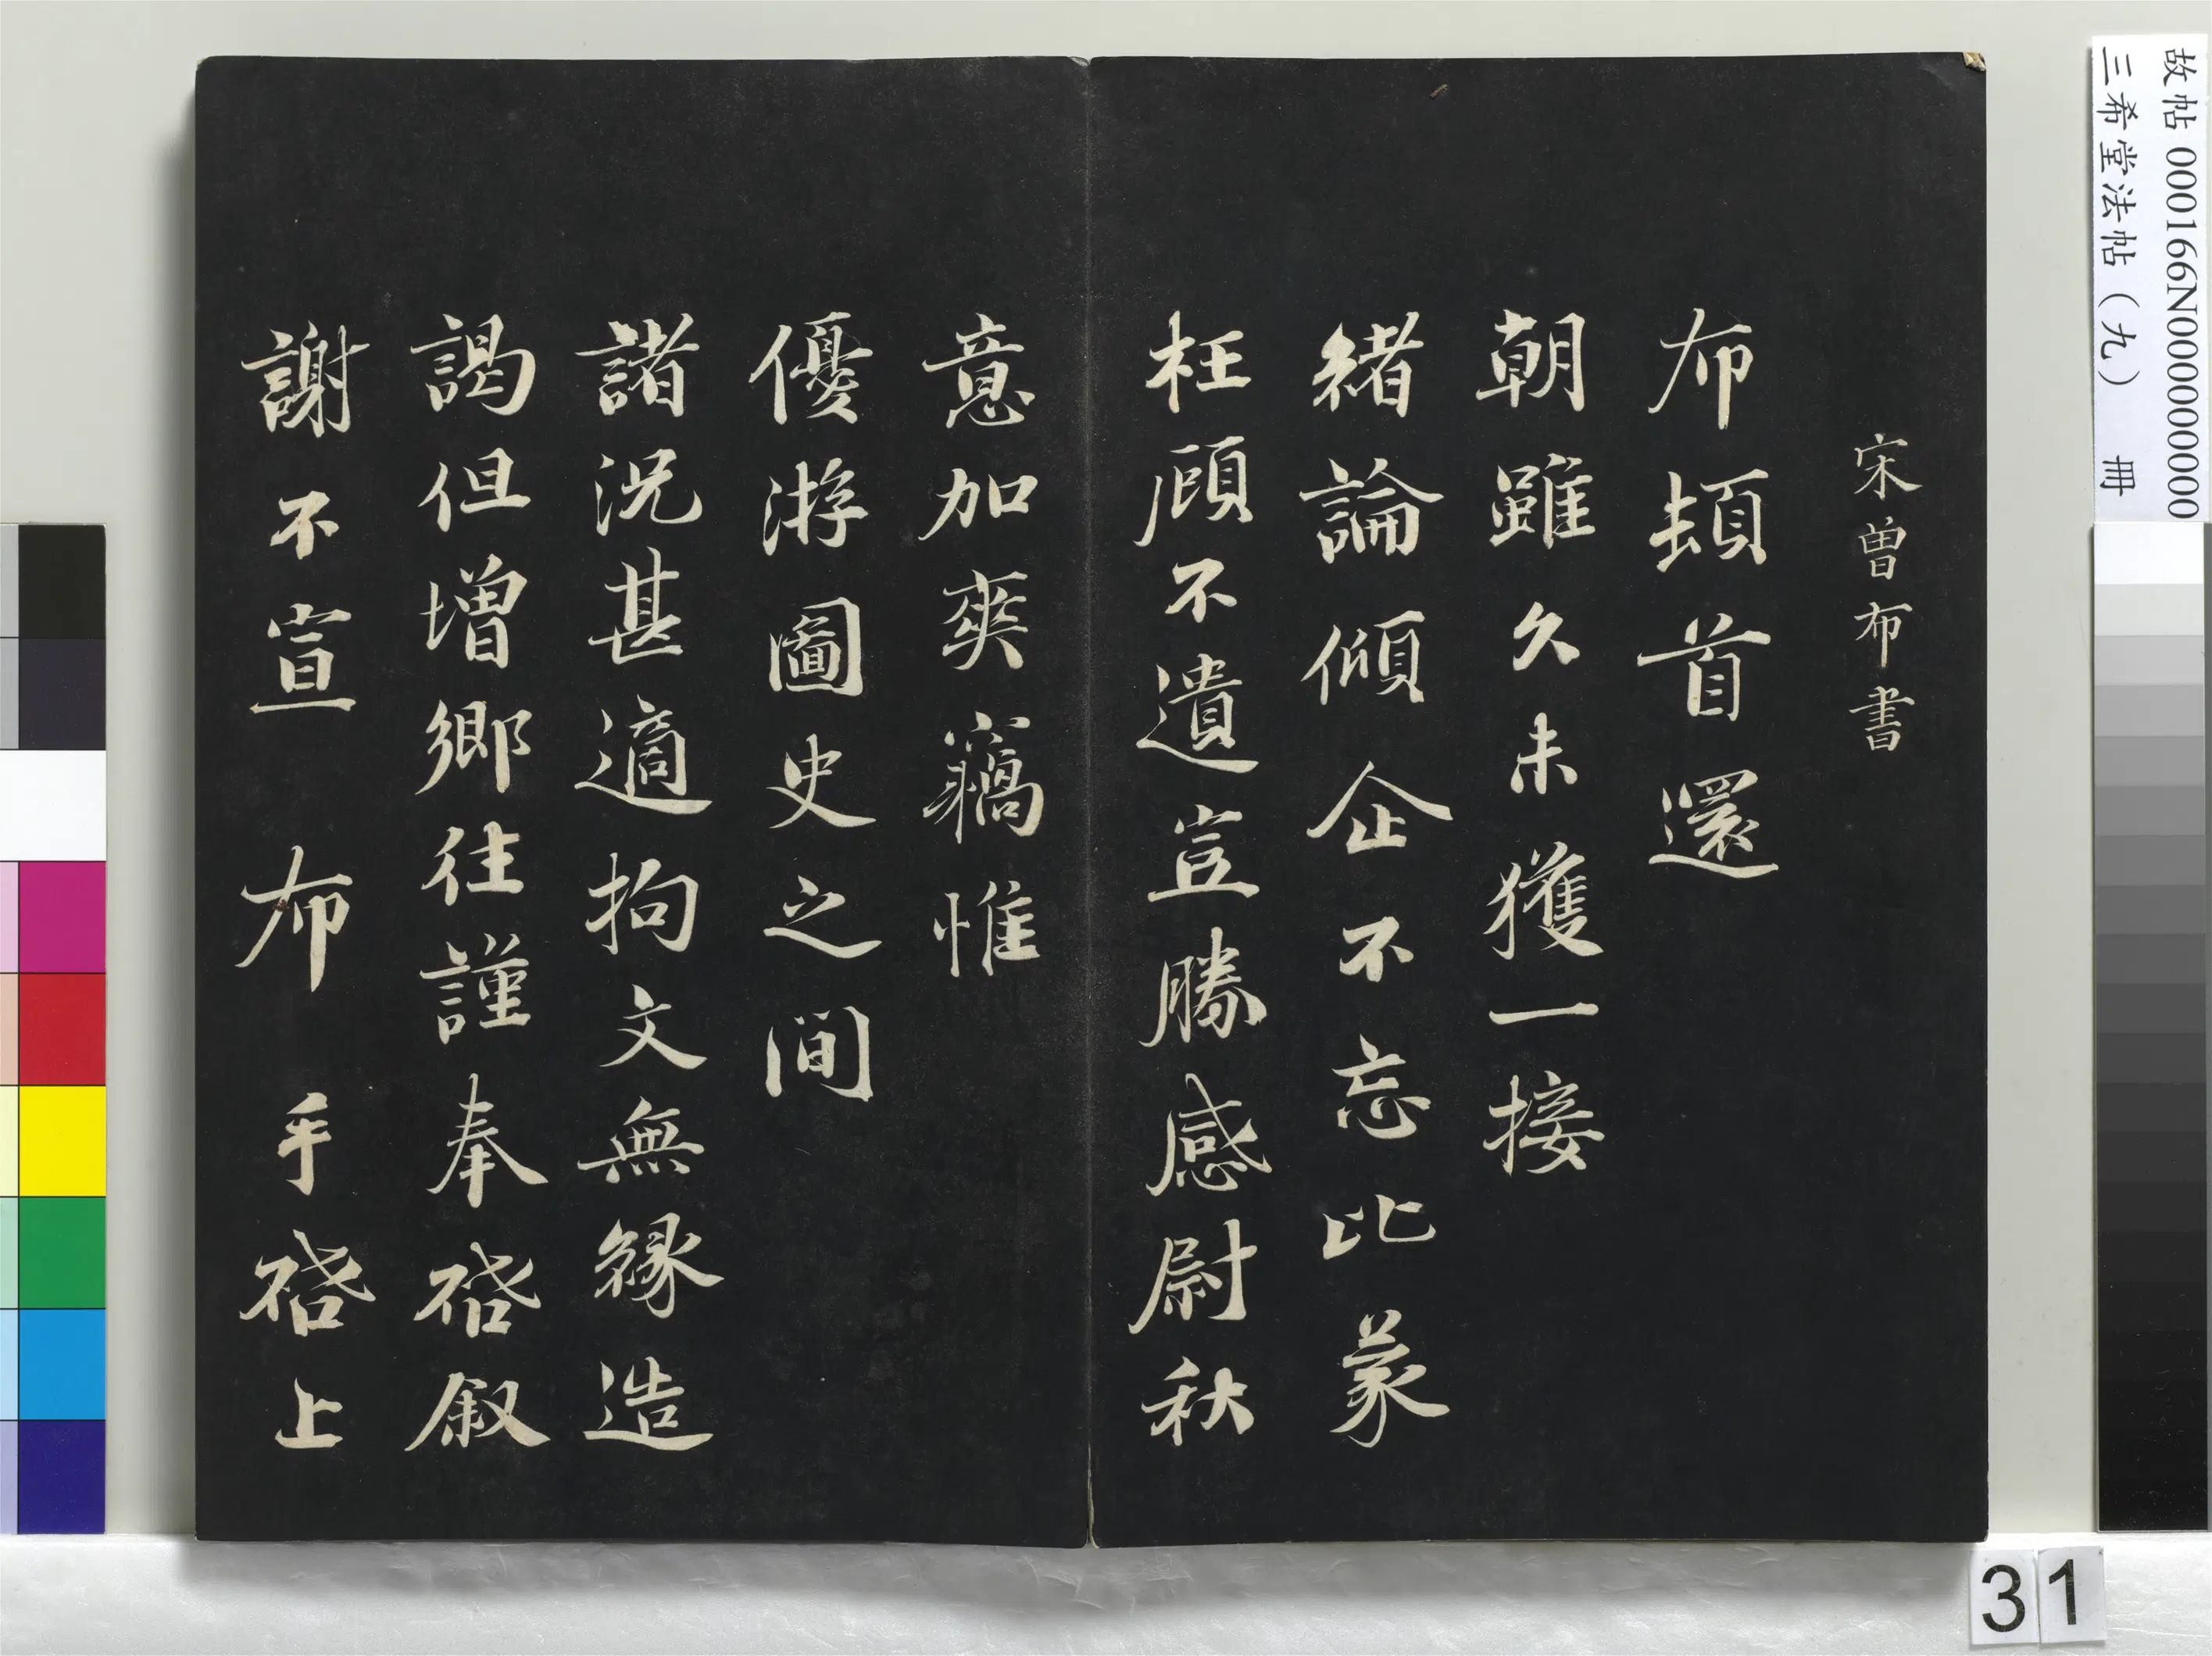 宋曾布書
布頓首還
朝雖久未獲一接
緒論傾企不忘比蒙
枉顧不遺豈勝感尉秋
意加爽竊惟
優游圖史之間
諸況甚適拘文無緣造
謁但增鄉往謹奉啓叙
謝不宣 布 手啓上
故帖 000166N000000000
三希堂法帖（九） 冊
31